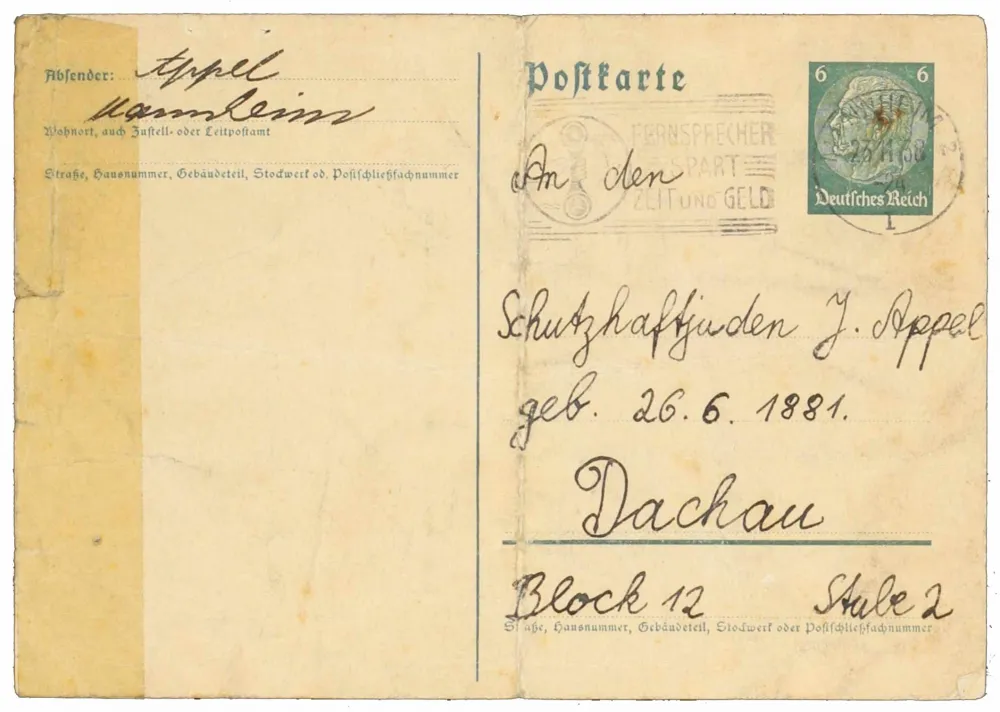 Absender: Appel
Mannheim
Wohnort, auch Zustell- oder Leitpostamt
Straße, Hausnummer, Gebäudeteil, Stockwerk od. Postschließfachnummer
Postkarte
6 6
MANNHEIM 2
23.11.38
-24
1
Deutsches Reich
FERNSPRECHER
SPART
ZEIT UND GELD
An den
Schutzhaftjuden J. Appel
geb. 26. 6. 1881.
Dachau
Block 12 Stube 2
Straße, Hausnummer, Gebäudeteil, Stockwerk oder Postschließfachnummer